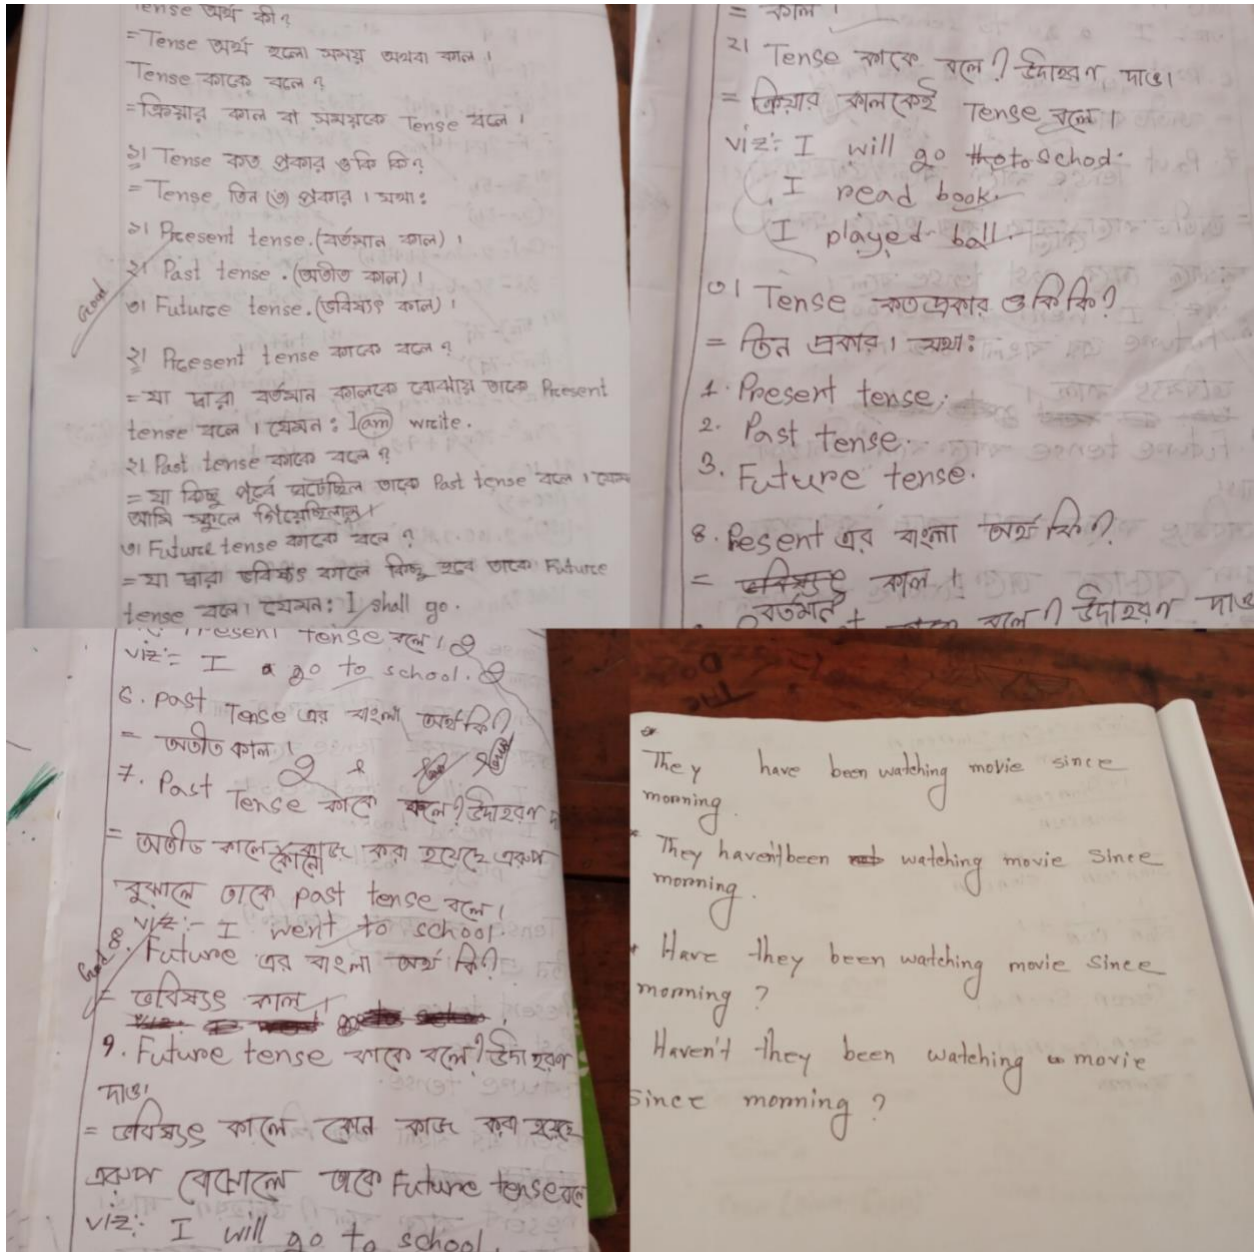 Tense অর্থ কী?
= Tense অর্থ হলো সময় অথবা কাল।
Tense কাকে বলে?
= ক্রিয়ার কাল বা সময়কে Tense বলে।
১। Tense কত প্রকার ও কি কি?
= Tense তিন (৩) প্রকার। যথা:
১। Present tense. (বর্তমান কাল)।
২। Past tense. (অতীত কাল)।
৩। Future tense. (ভবিষ্যৎ কাল)।
Good
২। Present tense কাকে বলে?
= যা দ্বারা বর্তমান কালকে বোঝায় তাকে Present
tense বলে। যেমন: I am write.
২। Past tense কাকে বলে?
= যা কিছু পূর্বে ঘটেছিল তাকে Past tense বলে। যেমন
আমি স্কুলে গিয়েছিলাম।
৩। Future tense কাকে বলে?
= যা দ্বারা ভবিষ্যৎ কালে কিছু হবে তাকে Future
tense বলে। যেমন: I shall go.
= কাল।
২। Tense কাকে বলে? উদাহরণ দাও।
= ক্রিয়ার কালকেই Tense বলে।
viz: I will go to school.
I read book.
I played ball.
৩। Tense কতপ্রকার ও কি কি?
= তিন প্রকার। যথা:
1. Present tense.
2. Past tense.
3. Future tense.
৪. Pesent এর বাংলা অর্থ কি?
= বর্তমান কাল।
বলে? উদাহরণ দাও
Present tense বলে।
viz:= I go to school.
6. Past Tense এর বাংলা অর্থ কি?
= অতীত কাল।
7. Past Tense কাকে বলে? উদাহরণ
= অতীত কালে কোনো কাজ করা হয়েছে এরুপ
বুঝালে তাকে past tense বলে।
viz:- I went to school.
Good
8. Future এর বাংলা অর্থ কি?
= ভবিষ্যৎ কাল।
9. Future tense কাকে বলে? উদাহরণ
দাও।
= ভবিষ্যৎ কালে কোন কাজ করা হয়েছে
এরুপ বোঝালে তাকে Future tense বলে
viz: I will go to school.
They have been watching movie since
morning.
They haven't been watching movie since
morning.
Have they been watching movie since
morning?
Haven't they been watching movie
since morning?